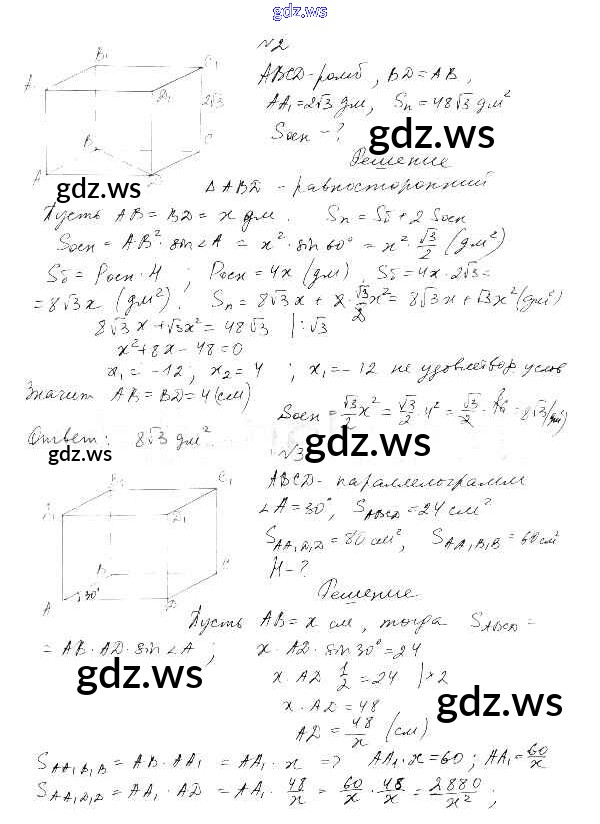 gdz.ws
№2
ABCD - ромб, BD = AB,
AA₁ = 2√3 дм, Sп = 48√3 дм²
Sосн - ?
gdz.ws
Решение
gdz.ws
△ABD - равносторонний
Пусть AB = BD = x дм. Sп = Sб + 2 Sосн
Sосн = AB² · sin∠A = x² · sin 60° = x² · √3/2 (дм²)
Sб = Pосн · H ; Pосн = 4x (дм) , Sб = 4x · 2√3 =
= 8√3x (дм²). Sп = 8√3x + 2 · √3/2 x² = 8√3x + √3x² (дм²)
8√3x + √3x² = 48√3 | : √3
x² + 8x - 48 = 0
x₁ = -12; x₂ = 4 ; x₁ = -12 не удовлетвор. услов
Значит AB = BD = 4 (см)
Sосн = √3/2 x² = √3/2 · 4² = √3/2 · 16 = 8√3 (дм²)
Ответ: 8√3 дм²
gdz.ws
№3
gdz.ws
ABCD - параллелограмм
∠A = 30°, S ABCD = 24 см²
S AA₁D₁D = 80 см², S AA₁B₁B = 60 см²
H - ?
Решение
Пусть AB = x см, тогда S ABCD =
= AB · AD · sin∠A ; x · AD · sin 30° = 24
gdz.ws
x · AD · 1/2 = 24 | × 2
gdz.ws
x · AD = 48
AD = 48/x (см)
S AA₁B₁B = AB · AA₁ = AA₁ · x => AA₁ · x = 60 ; AA₁ = 60/x
S AA₁D₁D = AA₁ · AD = AA₁ · 48/x = 60/x · 48/x = 2880/x² ;